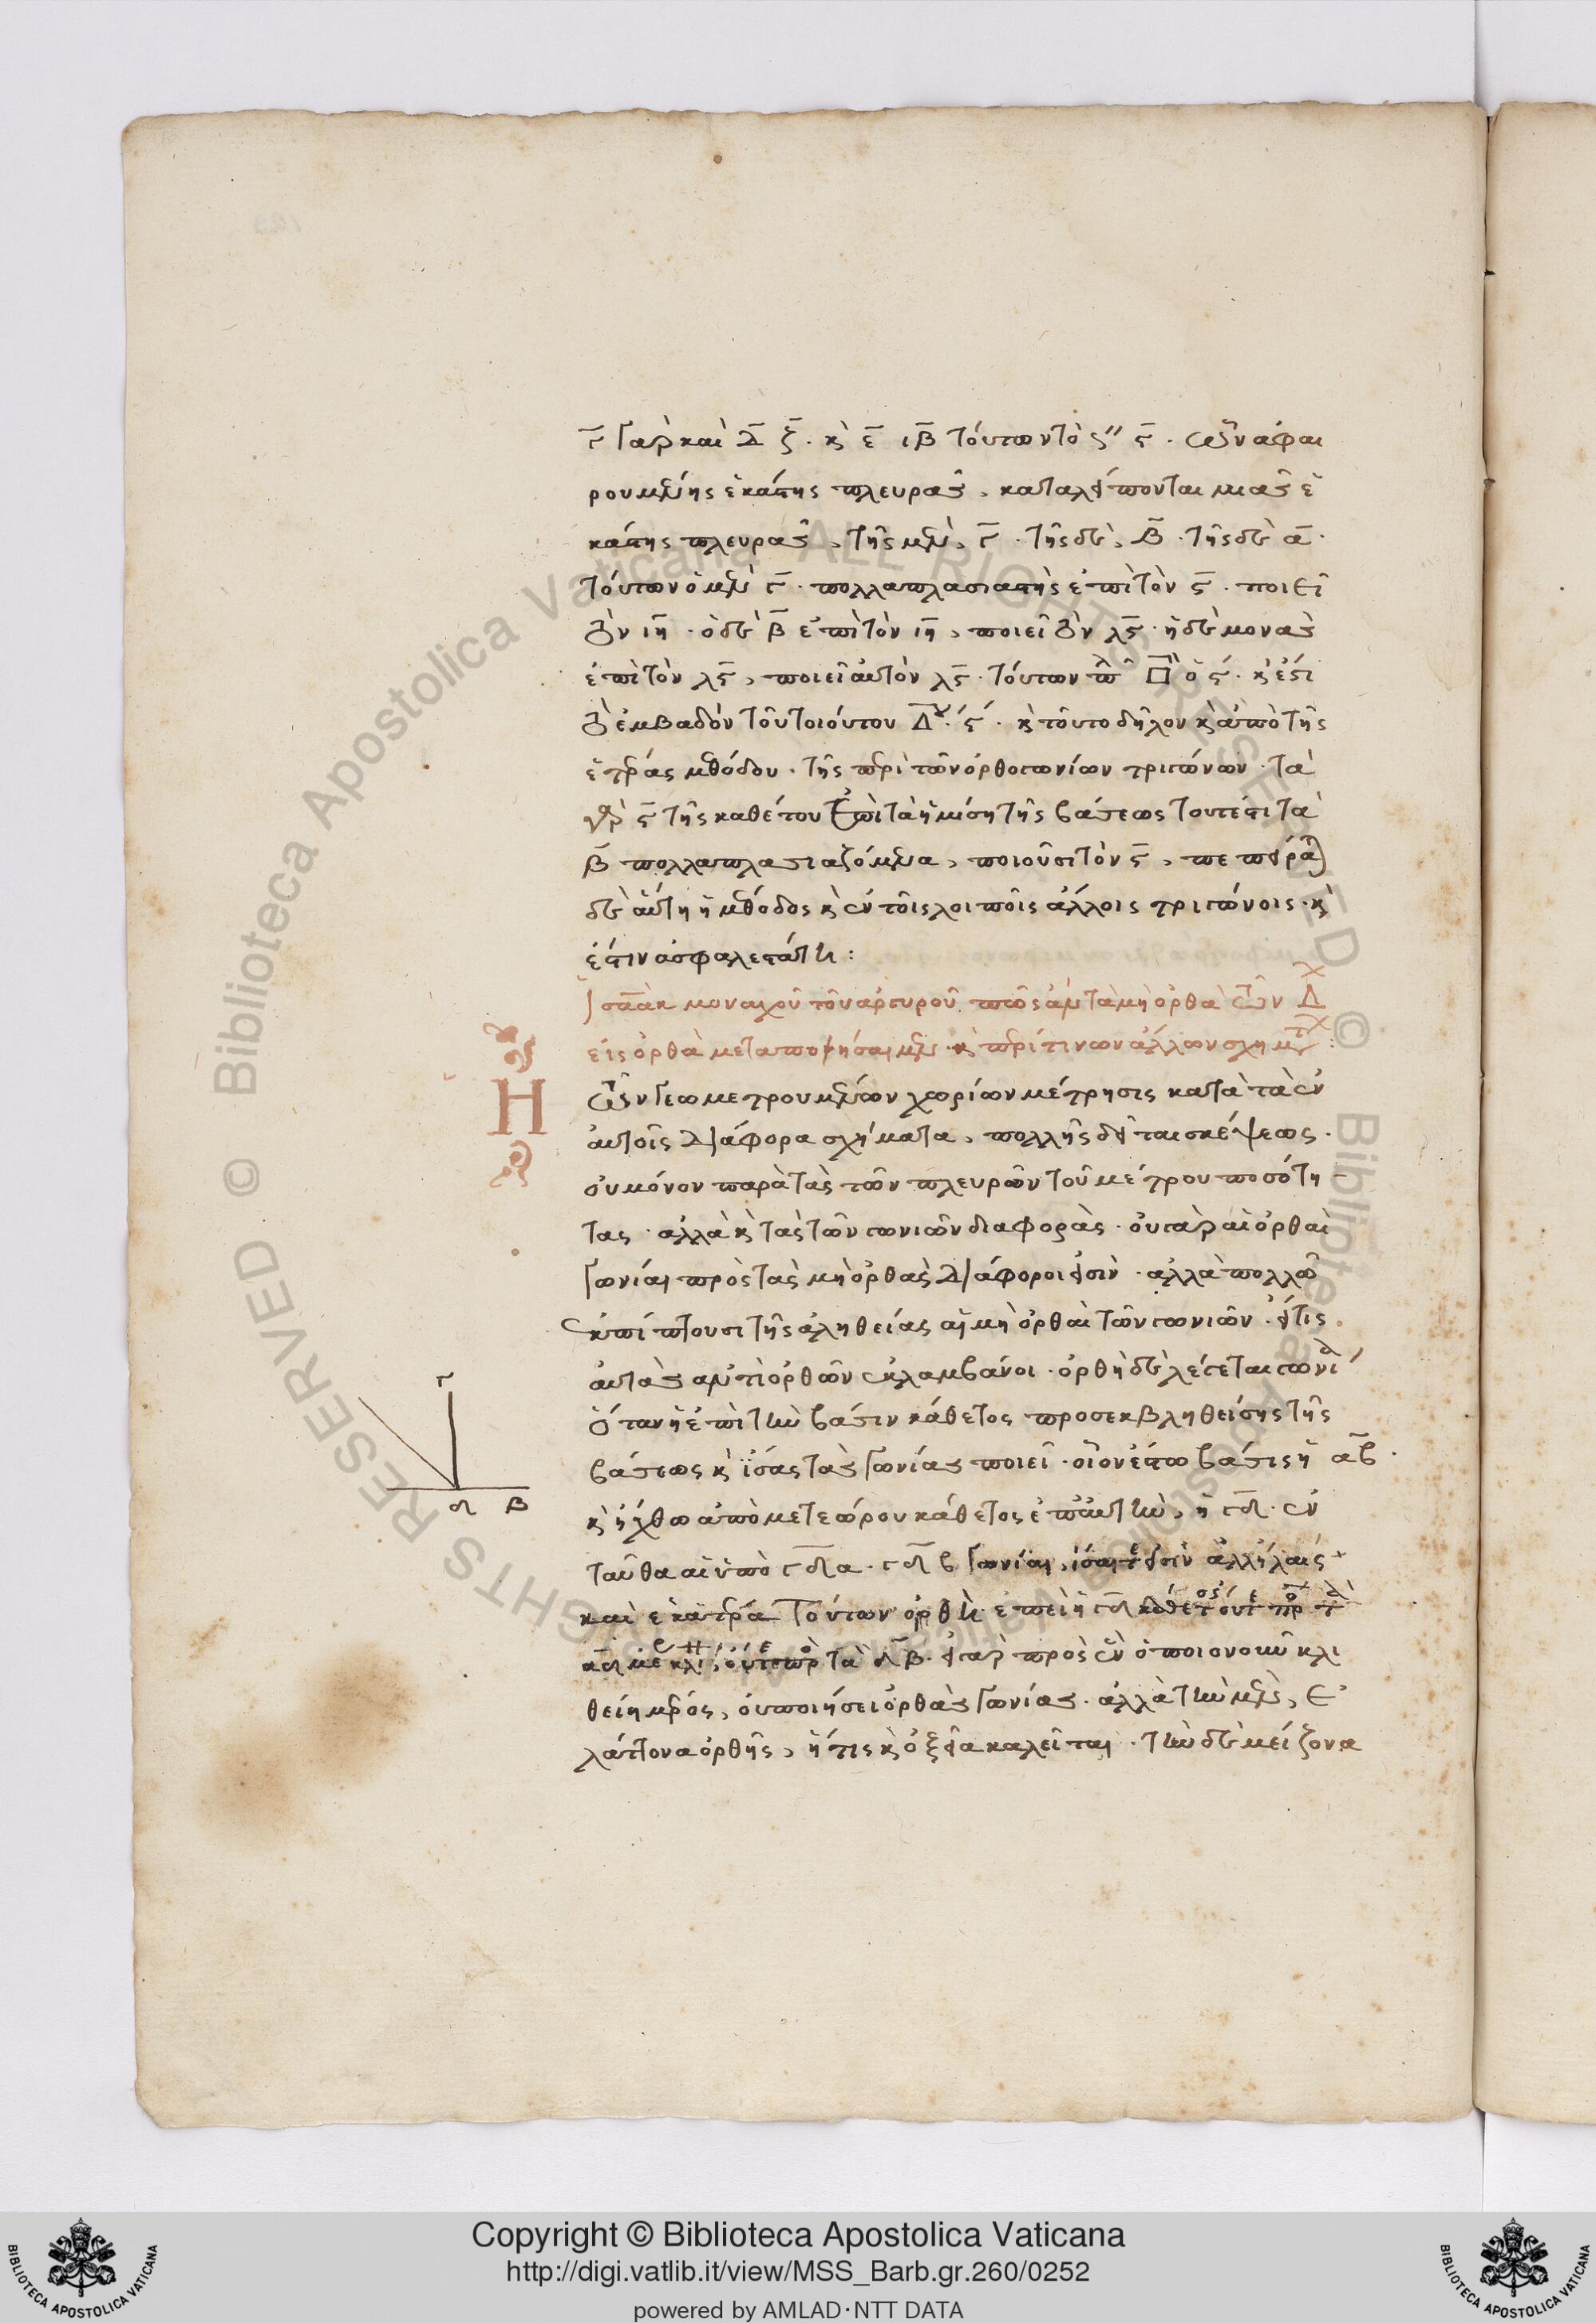 γ̅ γὰρ καὶ δ̅ ζ̅. κὶ ε̅ ιβ̅ τούτων τὸ ϛ´´ ϛ̅. ὧν ἀφαι
ρουμένης ἑκάστης πλευρᾶς, καταλείπονται μιᾶς ἑ
κάστης πλευρᾶς, τῆς μὲν, γ̅. τῆς δὲ, β̅. τῆς δὲ α̅.
τούτων ὁ μὲν γ̅. πολλαπλασιασθεὶς ἐπὶ τὸν ϛ̅. ποιεῖ
τὸν ιη̅. ὁ δὲ β̅ ἐπὶ τὸν ιη̅, ποιεῖ τὸν λϛ̅. ἡ δὲ μονὰς
ἐπὶ τὸν λϛ̅, ποιεῖ αὐτὸν λϛ̅. τούτων □ ὁ ϛ̅. κὶ ἔστι
τὸ ἐμβαδὸν τοῦ τοιούτου Δ. ϛ̅. κὶ τοῦτο δῆλον κὶ ἀπὸ τῆς
ἑτέρας μεθόδου. τῆς περὶ τῶν ὀρθογωνίων τριγώνων. τὰ
γὰρ ϛ̅ τῆς καθέτου ἐπὶ τὰ ἡμίση τῆς βάσεως τουτέστι τὰ
β̅ πολλαπλασιαζόμενα, ποιοῦσι τὸν ϛ̅, πεπείραται
δὲ αὕτη ἡ μέθοδος κὶ ἐν τοῖς λοιποῖς ἄλλοις τριγώνοις. κὶ
ἔστιν ἀσφαλεστάτη:
Ἰσαὰκ μοναχοῦ τοῦ ἀργυροῦ πῶς ἂν τὰ μὴ ὀρθὰ τῶν Δ
εἰς ὀρθὰ μεταποιήσαιμεν κὶ περί τινων ἄλλων σχημάτων:
Ἡ τῶν γεωμετρουμένων χωρίων μέτρησις κατὰ τὰ ἐν
αὐτοῖς διάφορα σχήματα, πολλῆς δεῖται σκέψεως.
οὐ μόνον παρὰ τὰς τῶν πλευρῶν τοῦ μέτρου ποσότη
τας. ἀλλὰ κὶ τὰς τῶν γωνιῶν διαφοράς. οὐ γὰρ αἱ ὀρθαὶ
γωνίαι πρὸς τὰς μὴ ὀρθὰς διάφοροι εἰσίν. ἀλλὰ πολλῶ
ἐκπίπτουσι τῆς ἀληθείας αἱ μὴ ὀρθαὶ τῶν γωνιῶν. εἴ τις
αὐτὰς ἀντὶ ὀρθῶν ἐκλαμβάνοι. ὀρθὴ δὲ λέγεται γωνία
ὅταν ἡ ἐπὶ τὴν βάσιν κάθετος προσεκβληθείσης τῆς
βάσεως κὶ ἴσας τὰς γωνίας ποιεῖ. οἷον ἔστω βάσις ἡ α̅β̅.
κὶ ἤχθω ἀπὸ μετεώρου κάθετος ἐπ' αὐτὴν, ἡ γ̅δ̅. ἐν
ταῦθα αἱ ὑπὸ γ̅δ̅α. γ̅δ̅ β γωνίαι, ἴσαι τε εἰσὶν ἀλλήλαις.
καὶ ἑκατέρα τούτων ὀρθή. ἐπεὶ ἡ γ̅δ̅ κάθετος οὔτε πρὸς τὸ
α̅δ̅ μέρος κλί, οὔτε πρὸς τὸ δ̅β̅. εἰ γὰρ πρὸς ἓν ὁποιονοῦν κλι
θείη μέρος, οὐ ποιήσει ὀρθὰς γωνίας. ἀλλὰ τὴν μὲν, ἐ
λάττονα ὀρθῆς, ἥτις κὶ ὀξεῖα καλεῖται. τὴν δὲ μείζονα
γ
δ β
Copyright © Biblioteca Apostolica Vaticana
http://digi.vatlib.it/view/MSS_Barb.gr.260/0252
powered by AMLAD·NTT DATA
BIBLIOTECA APOSTOLICA VATICANA
BIBLIOTECA APOSTOLICA VATICANA